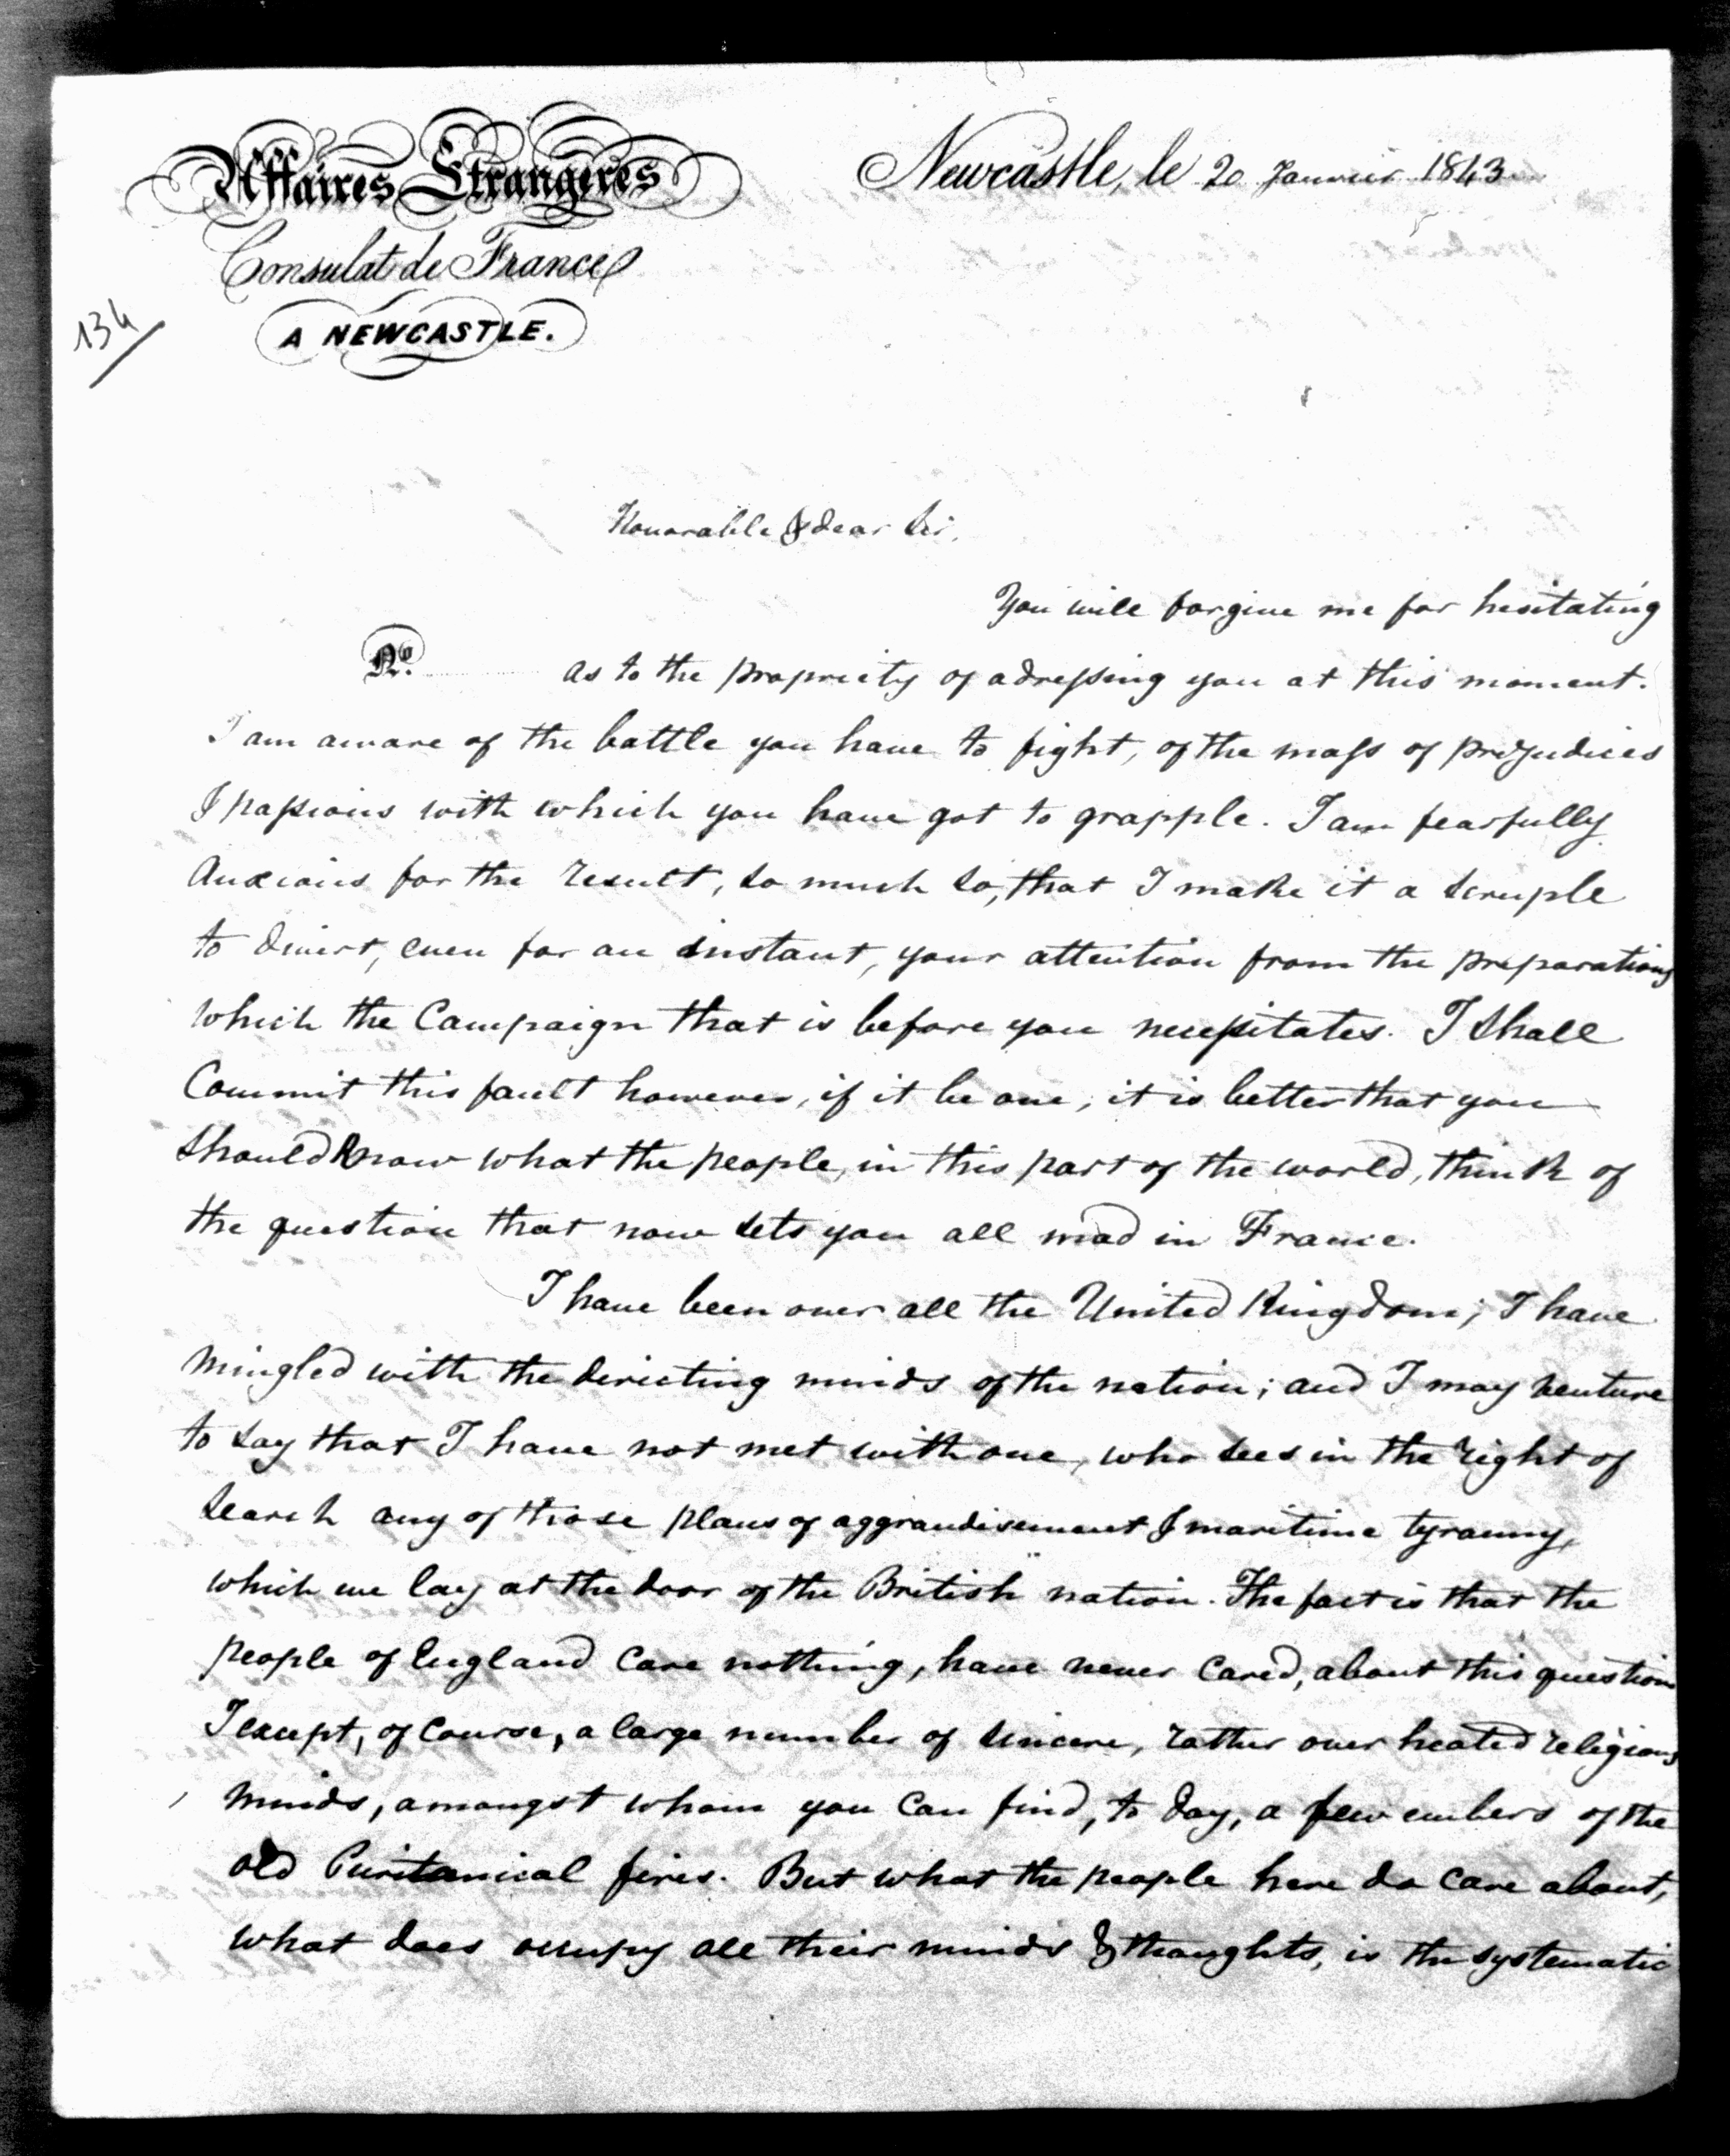 Affaires Étrangères
Newcastle, le 20 Janvier 1843
Consulat de France
A NEWCASTLE.
134
Honorable & dear Sir,
You will forgive me for hesitating
No.
as to the propriety of adressing you at this moment.
I am aware of the battle you have to fight, of the mass of prejudices
& passions with which you have got to grapple. I am fearfully
anxious for the result, so much so, that I make it a scruple
to divert, even for an instant, your attention from the preparations
which the Campaign that is before you necessitates. I shall
Commit this fault however, if it be one, it is better that you
should know what the people, in this part of the world, think of
the question that now sets you all mad in France.
I have been over all the United Kingdom; I have
mingled with the directing minds of the nation; and I may venture
to say that I have not met with one, who sees in the right of
search any of those plans of aggrandisement & maritime tyranny,
which we lay at the door of the British nation. The fact is that the
people of England care nothing, have never cared, about this question
I except, of course, a large number of sincere, rather over heated religious
minds, amongst whom you can find, to day, a few embers of the
old Puritanical fires. But what the people here do care about,
what does occupy all their minds & thoughts, is the systematic